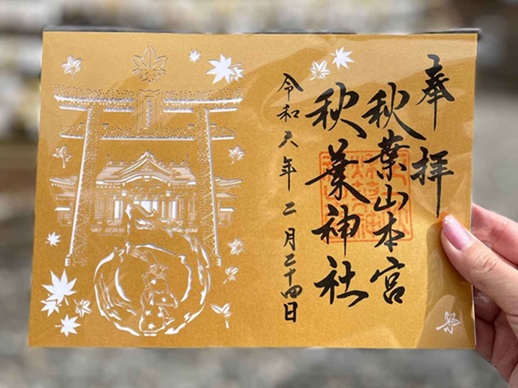 奉拝
秋葉山本宮
秋葉神社
令和六年二月二十四日